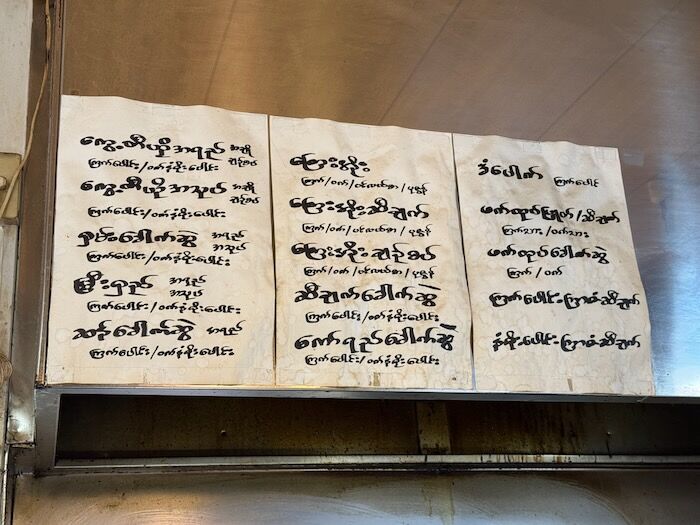 ကွေ့တီယို အရည် အချို
ချဉ်စပ်
ကြက်ပေါင်း/ဝက်နံရိုးပေါင်း
ကွေ့တီယို အသုပ် အချို
ချဉ်စပ်
ကြက်ပေါင်း/ဝက်နံရိုးပေါင်း
ရှမ်းခေါက်ဆွဲ အရည်
အသုပ်
ကြက်ပေါင်း/ဝက်နံရိုးပေါင်း
မြီးရှည် အရည်
အသုပ်
ကြက်ပေါင်း/ဝက်နံရိုးပေါင်း
ဆန်ခေါက်ဆွဲ အရည်
ကြက်ပေါင်း/ဝက်နံရိုးပေါင်း
ကြေးအိုး
ကြက်/ဝက်/ပင်လယ်စာ/ပုစွန်
ကြေးအိုးဆီချက်
ကြက်/ဝက်/ပင်လယ်စာ/ပုစွန်
ကြေးအိုးချဉ်စပ်
ကြက်/ဝက်/ပင်လယ်စာ/ပုစွန်
ဆီချက်ခေါက်ဆွဲ
ကြက်ပေါင်း/ဝက်နံရိုးပေါင်း
ကော်ရည်ခေါက်ဆွဲ
ကြက်ပေါင်း/ဝက်နံရိုးပေါင်း
ဒံပေါက် ကြက်ပေါင်
ဖက်ထုပ်ပြုတ်/ဆီချက်
ကြက်သား/ဝက်သား
ဖက်ထုပ်ခေါက်ဆွဲ
ကြက်/ဝက်
ကြက်ပေါင်းကြာဇံဆီချက်
နံရိုးပေါင်းကြာဇံဆီချက်